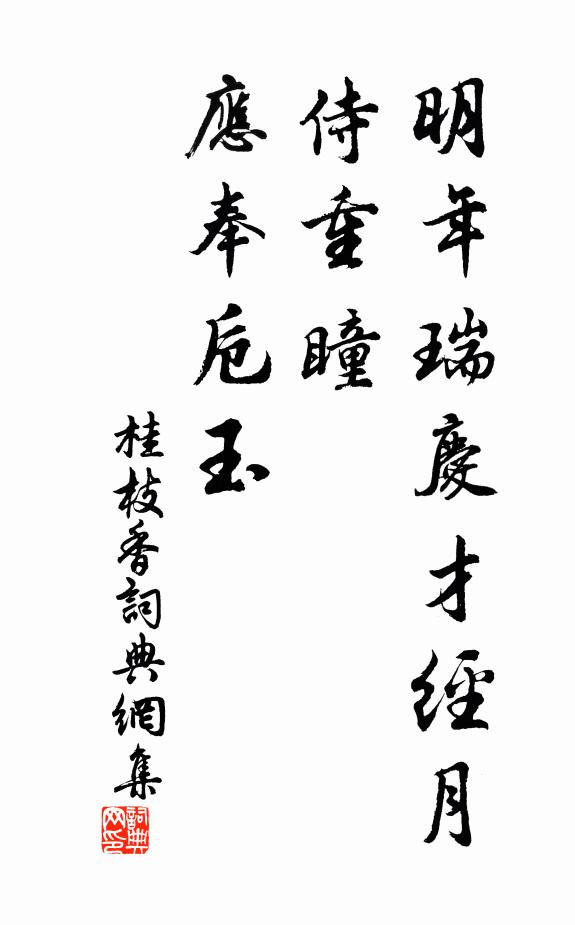 明年瑞慶才經月
侍重瞳
應奉卮玉
桂枝香詞典網集
詞典网印